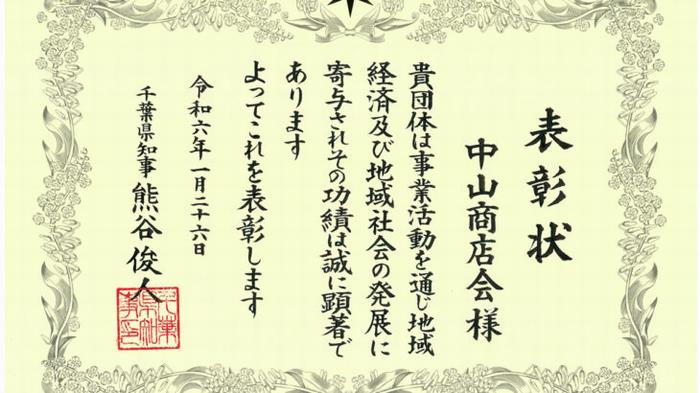 表彰状
中山商店会様
貴団体は事業活動を通じ地域
経済及び地域社会の発展に
寄与されその功績は誠に顕著で
あります
よってこれを表彰します
令和六年一月二十六日
千葉県知事 熊谷俊人
千葉県知事印